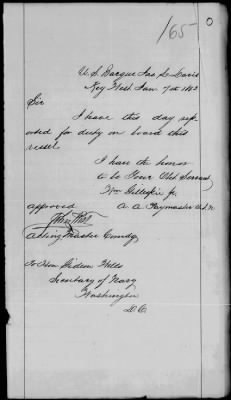 165
U. S. Barque Jas. S. Davis
Key West Jan. 7th 1863
Sir
I have this day rep
orted for duty on board this
vessel
I have the honor
to be Your Obt Servant,
Wm Gillespie Jr.
approved A. A. Paymaster U.S.N
Acting Master Comdg
To Hon. Gideon Wells
Secretary of Navy
Washington
D.C.